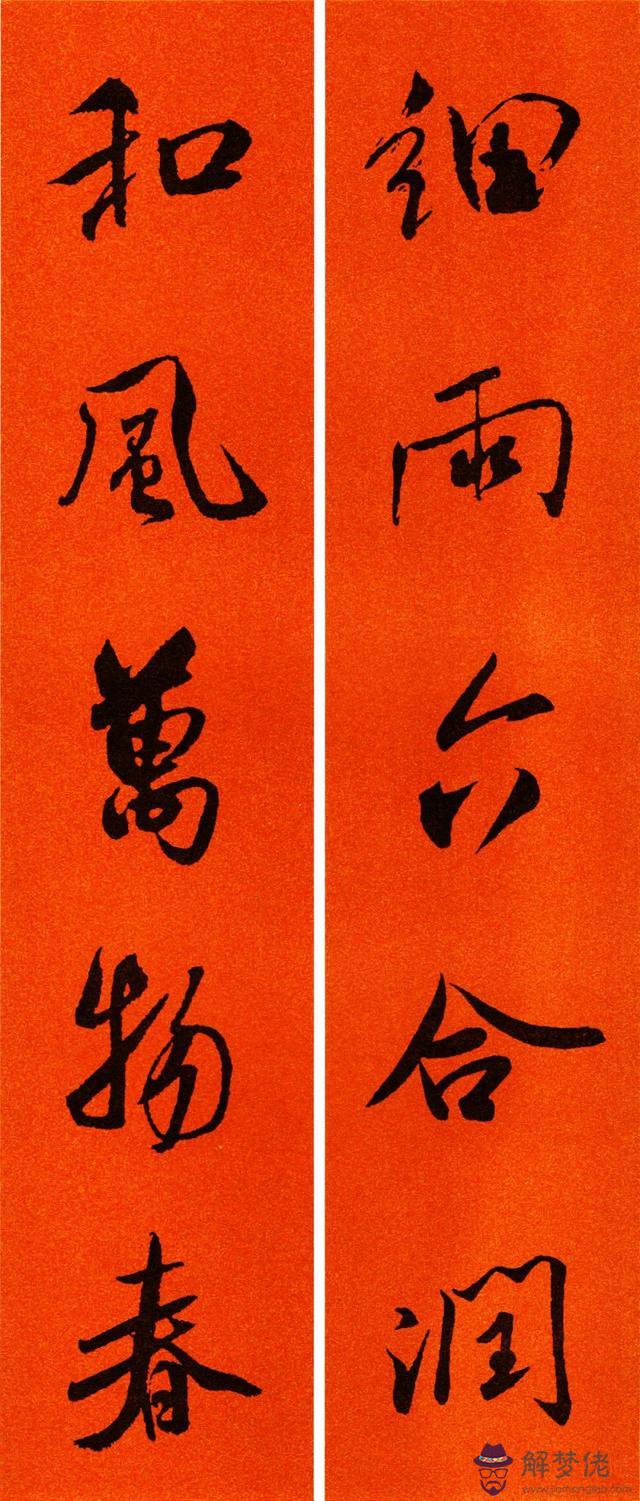 細雨六合潤
和風萬物春
解梦佬